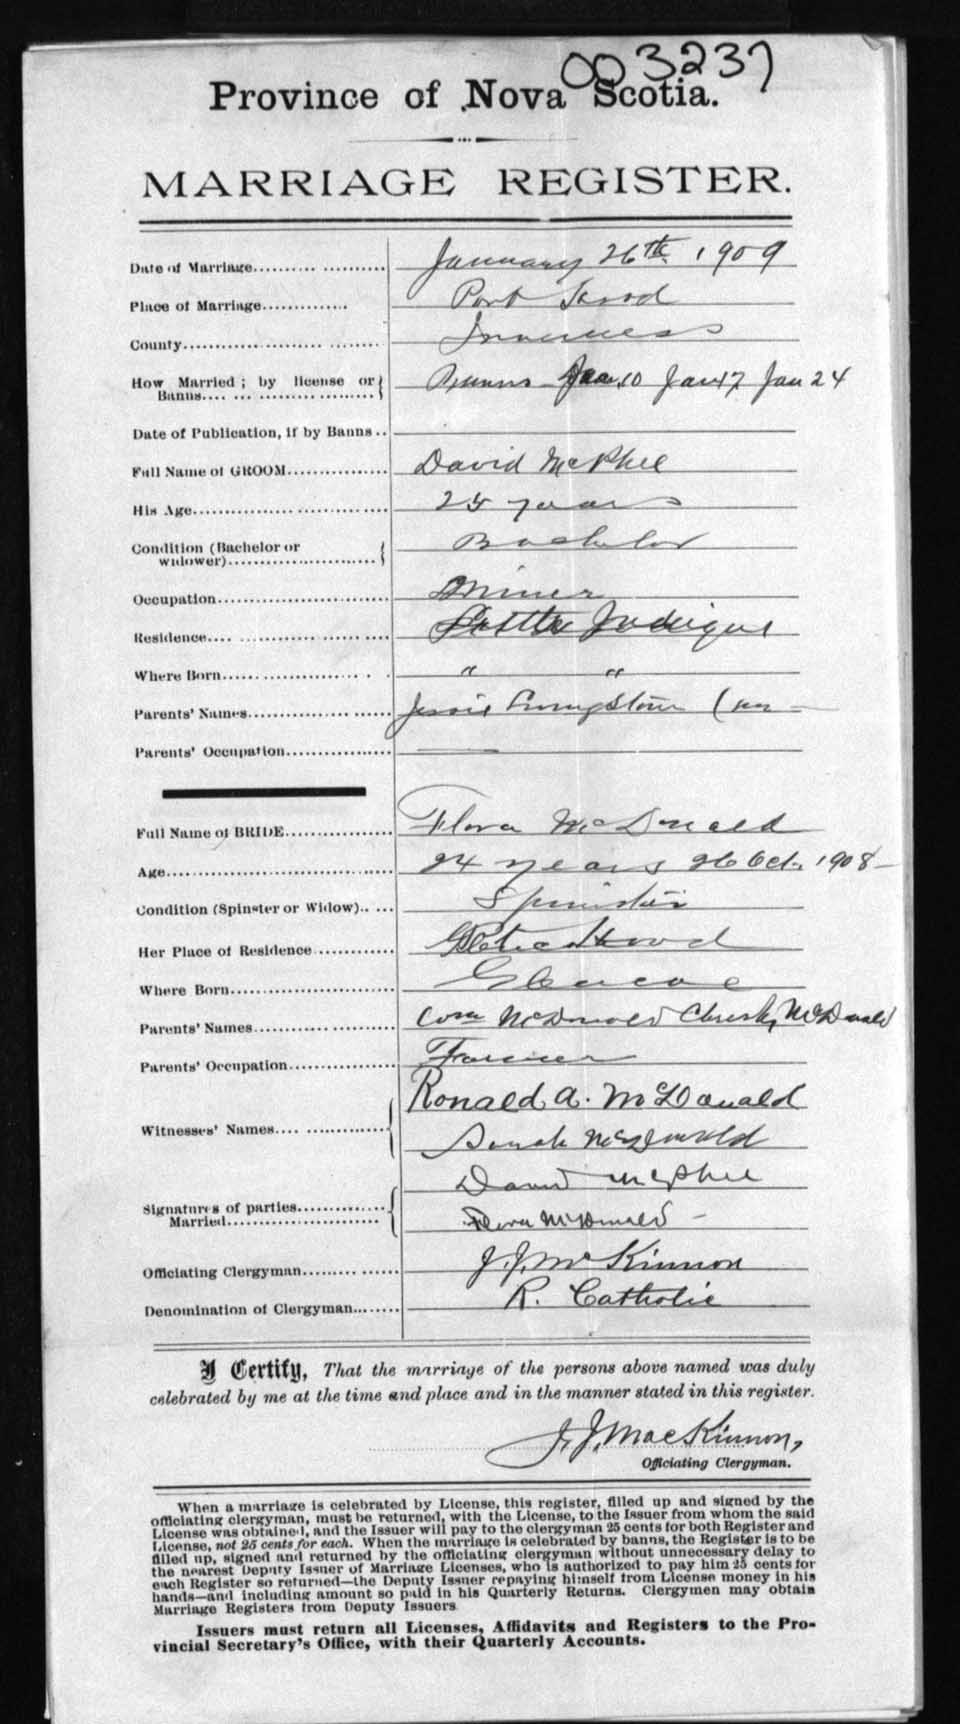 003237
Province of Nova Scotia.
MARRIAGE REGISTER.
Date of Marriage.................. January 26th. 1909
Place of Marriage............. Port Hood
County.............................. Inverness
How Married; by license or Banns........................ Banns - Jan 10 Jan 17 Jan 24
Date of Publication, if by Banns..
Full Name of GROOM............... David McPhee
His Age.............................. 25 years
Condition (Bachelor or widower)....................... Bachelor
Occupation.......................... Miner
Residence.......................... Little Judique
Where Born...................... " "
Parents' Names.................... Jessie Livingstone (
Parents' Occupation................ ——
Full Name of BRIDE................ Flora McDonald
Age................................. 24 years 26 Oct. 1908 -
Condition (Spinster or Widow)..... Spinster
Her Place of Residence............ Hood
Where Born........................ Glencoe
Parents' Names..................... McDonald Christy McDonald
Parents' Occupation............... Farmer
Witnesses' Names.................. Ronald A. McDonald
Sarah McDonald
Signatures of parties Married....................... David McPhee
Flora McDonald -
Officiating Clergyman.............. J. J. McKinnon
Denomination of Clergyman........ R. Catholic
I Certify, That the marriage of the persons above named was duly
celebrated by me at the time and place and in the manner stated in this register.
J. J. MacKinnon,
Officiating Clergyman.
When a marriage is celebrated by License, this register, filled up and signed by the
officiating clergyman, must be returned, with the License, to the Issuer from whom the said
License was obtained, and the Issuer will pay to the clergyman 25 cents for both Register and
License, not 25 cents for each. When the marriage is celebrated by banns, the Register is to be
filled up, signed and returned by the officiating clergyman without unnecessary delay to
the nearest Deputy Issuer of Marriage Licenses, who is authorized to pay him 25 cents for
each Register so returned—the Deputy Issuer repaying himself from License money in his
hands—and including amount so paid in his Quarterly Returns. Clergymen may obtain
Marriage Registers from Deputy Issuers.
Issuers must return all Licenses, Affidavits and Registers to the Pro-
vincial Secretary's Office, with their Quarterly Accounts.